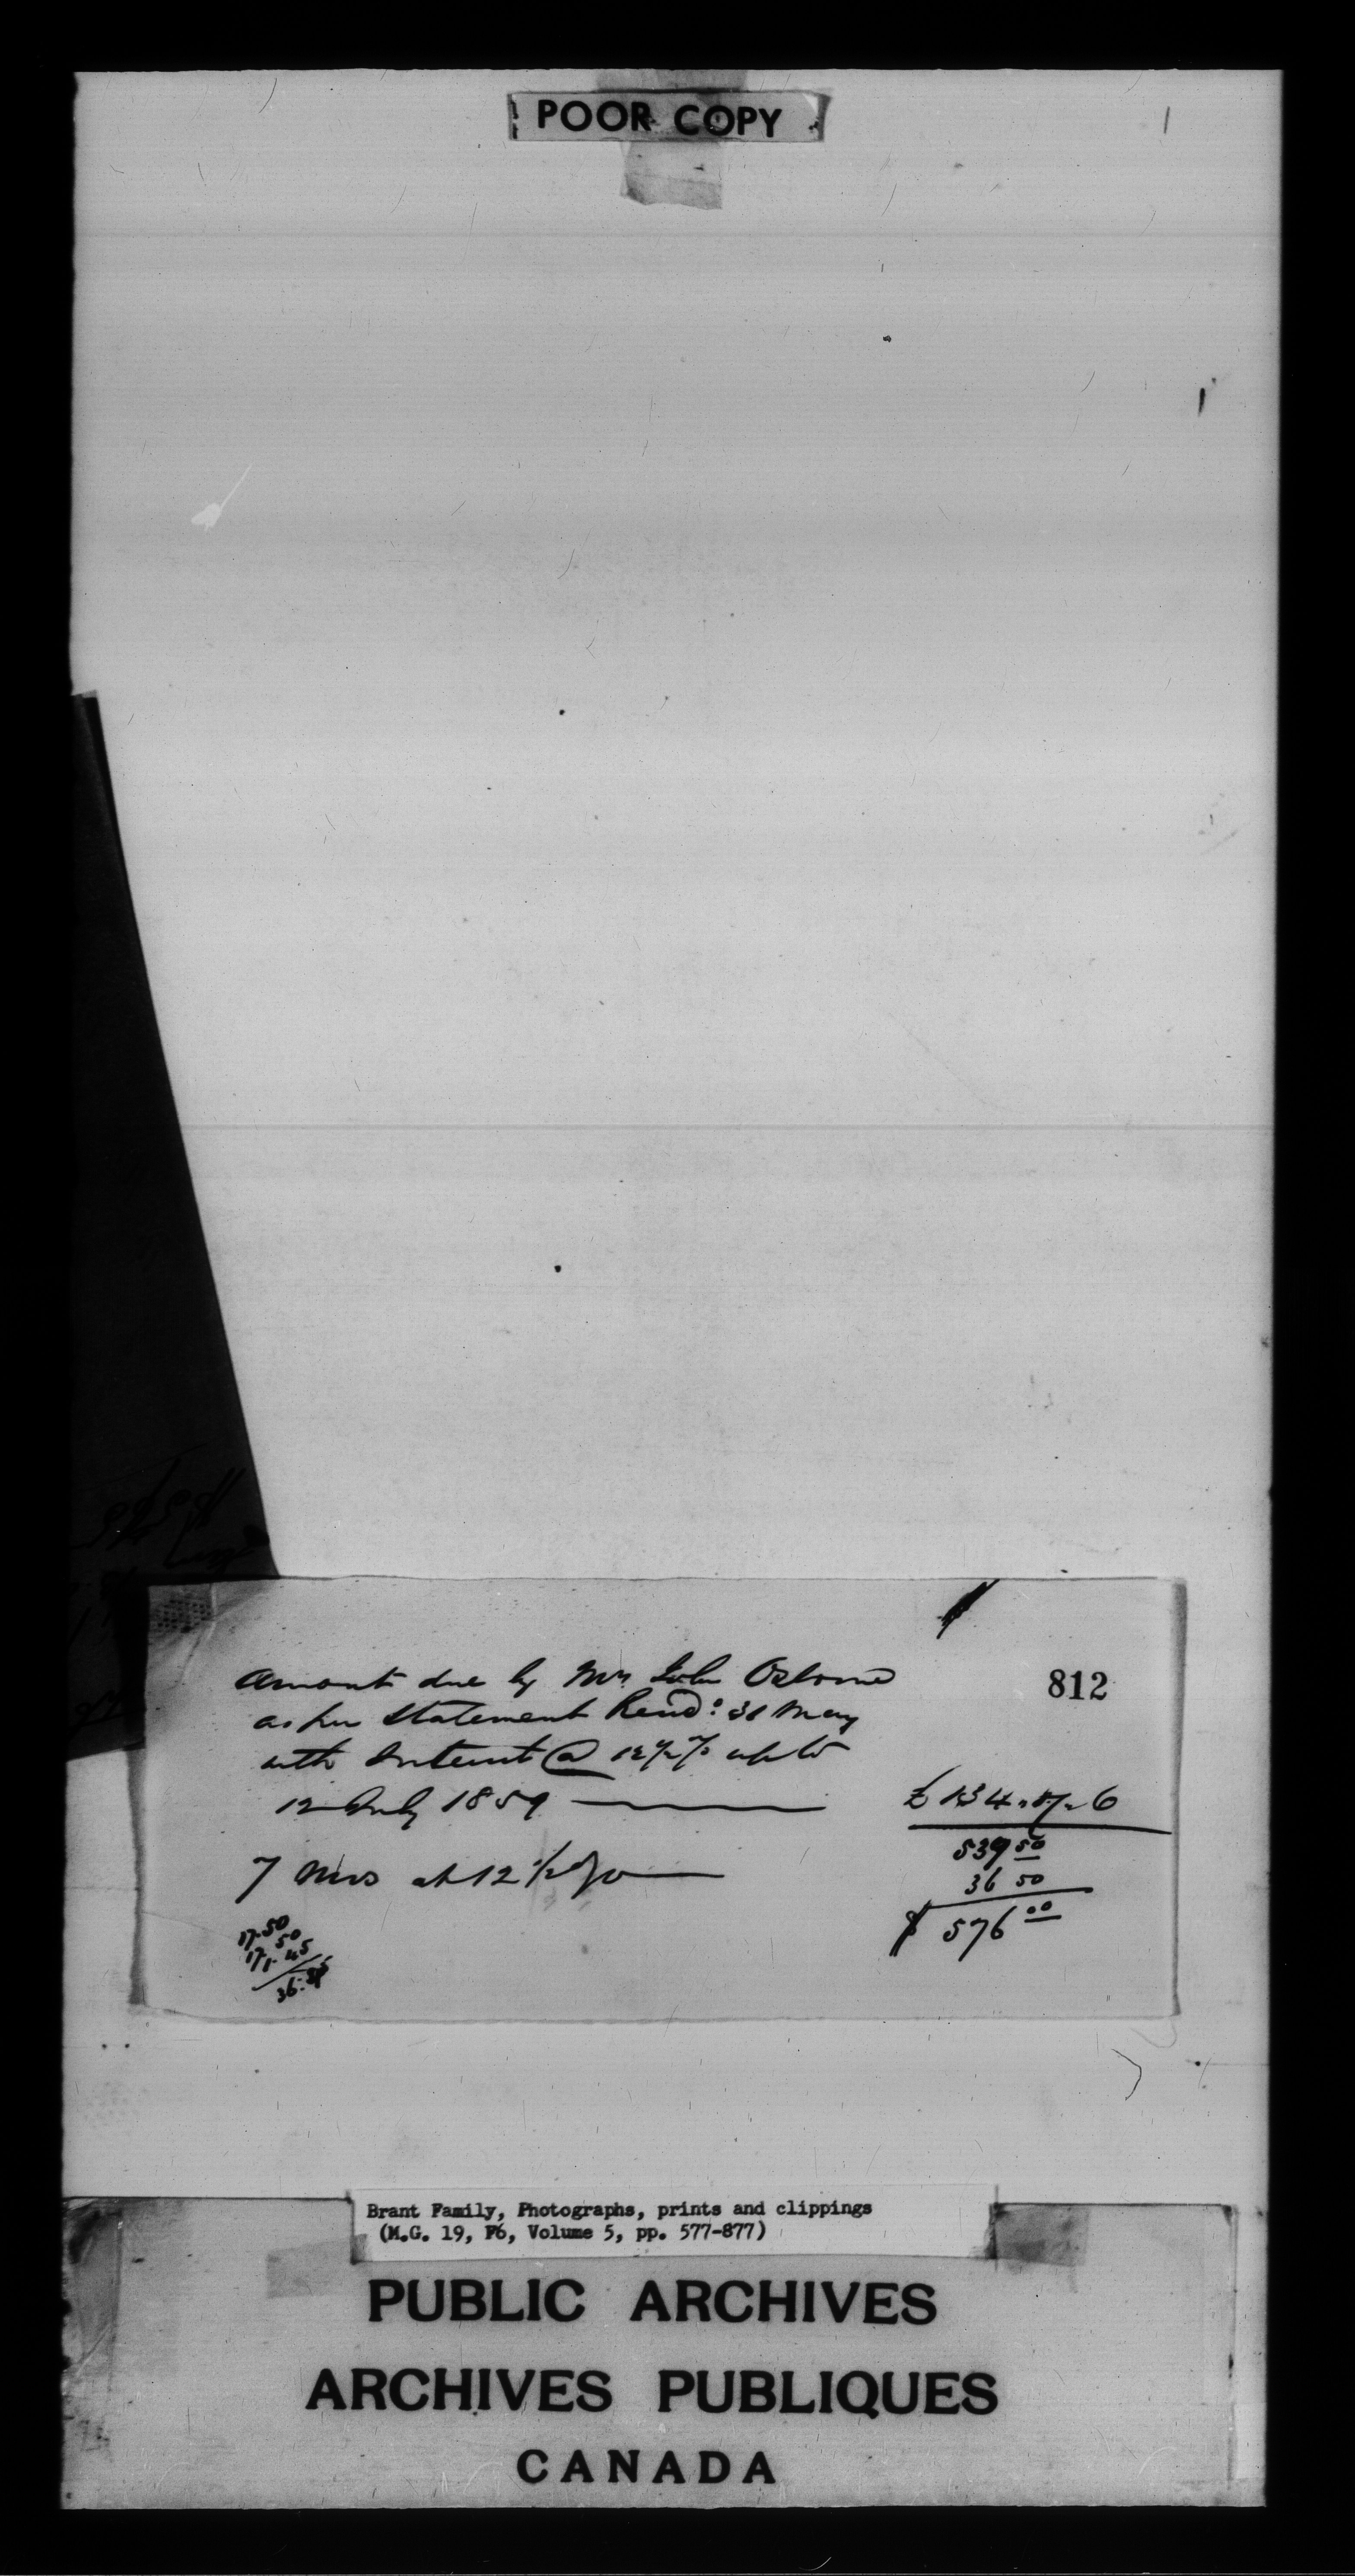 POOR COPY
812
Amount due by Mr. John Osborne
as per Statement Rend: 31 May
with Interest @ 12½% up to
12 July 1859
£ 134.17.6
539 50
7 Mos at 12 ½ %
36 50
$ 576 00
17.50
17. 50
1. 45
36.
Brant Family, Photographs, prints and clippings
(M.G. 19, F6, Volume 5, pp. 577-877)
PUBLIC ARCHIVES
ARCHIVES PUBLIQUES
CANADA